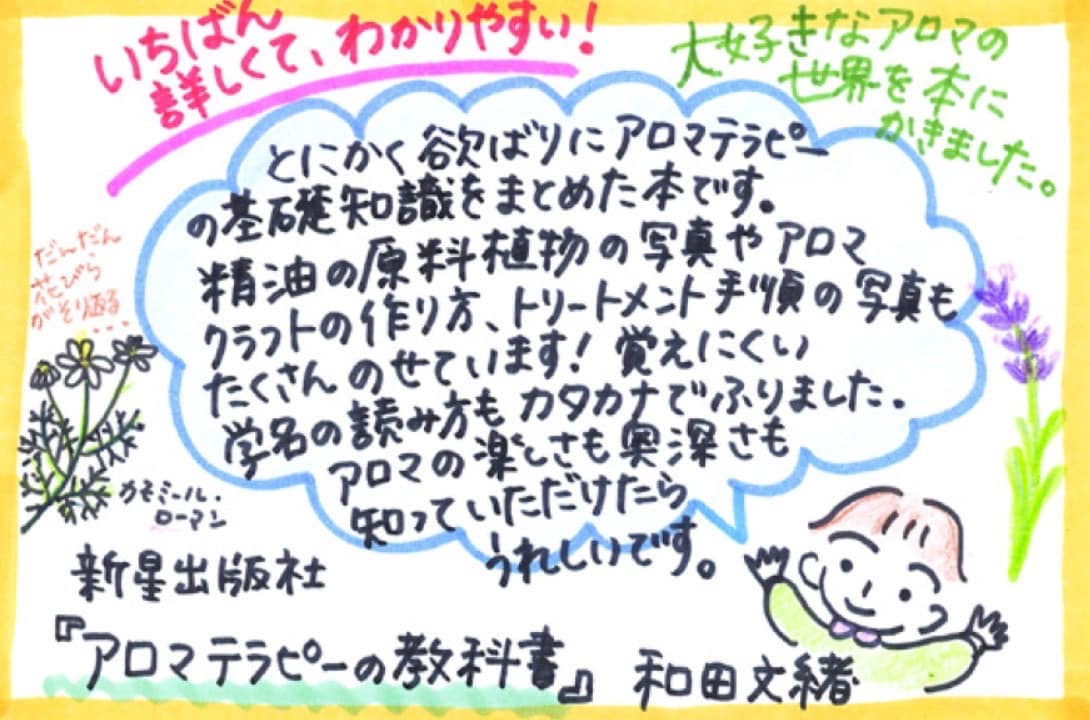 いちばん
詳しくて、わかりやすい!
大好きなアロマの
世界を本に
かきました。
とにかく欲ばりにアロマテラピー
の基礎知識をまとめた本です。
精油の原料植物の写真やアロマ
クラフトの作り方、トリートメント手順の写真も
たくさんのせています!覚えにくい
学名の読み方もカタカナでふりました。
アロマの楽しさも奥深さも
知っていただけたら
うれしいです。
だんだん
花びら
がそり返る
...
カモミール・
ローマン
新星出版社
『アロマテラピーの教科書』 和田文緒